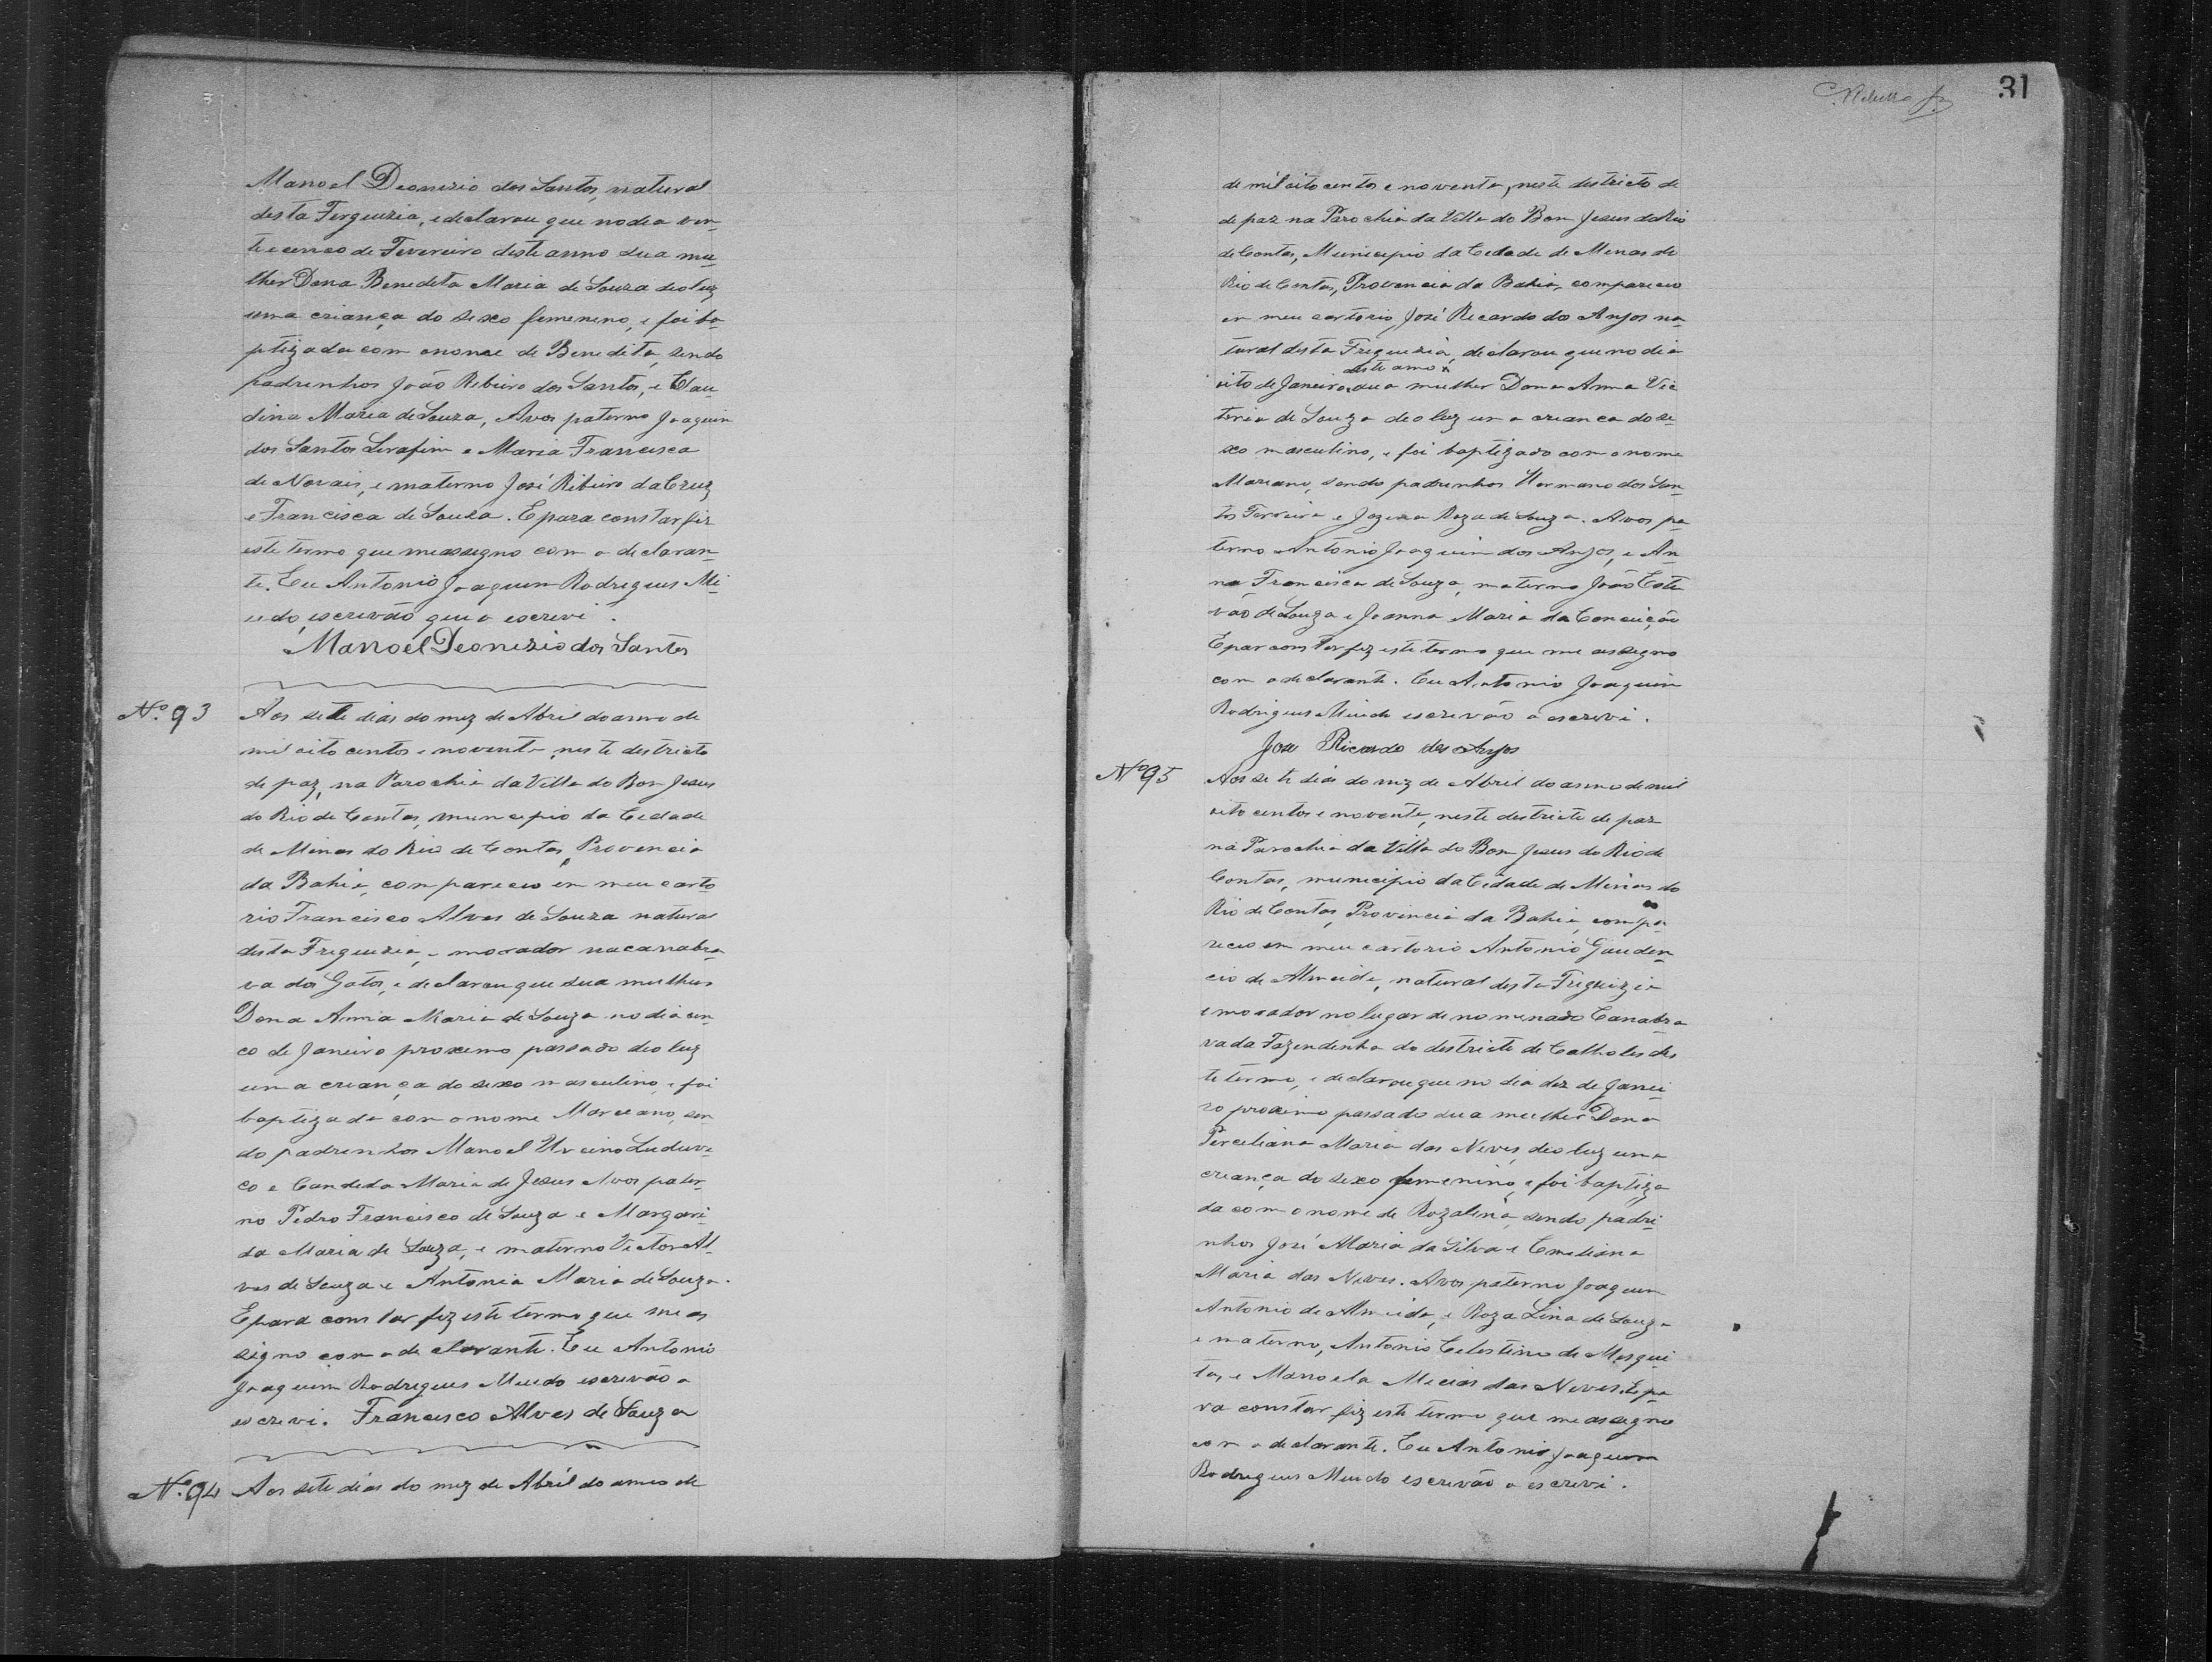 Manoel Deonizio dos Santos, natural
desta Ferguezia, e declarou que no dia vin-
te e cenco de Fevereiro deste anno sua mu-
lher Dona Benedeta Maria de Souza deo luz
uma criança do sexo femenino, e foi ba-
ptizada com o nome de Benedita, sendo
padrinhos João Ribeiro dos Santos, e Clau-
dina Maria de Souza, Avos paterno Joaquim
dos Santos Serafim e Maria Francisca
de Novais, e materno José Ribeiro da Cruz
e Francisca de Souza. E para constar fiz
este termo que me assegno com o declaran-
te. Eu Antonio Joaquim Rodrigues Mi-
udo, escrevão que o escrevi.
Manoel Deonizio dos Santos
Nº 93
Aos sete dias do mez de Abril do anno de
mil oito centos e novente, neste destricto
de paz, na Parochia da Villa do Bom Jesus
do Rio de Contas, municipio da Cedade
de Minas do Rio de Contas, Provencia
da Bahia, compareceo em meu carto
rio Francisco Alves de Souza natural
desta Freguezia, e morador na canabra
va dos Gatos, e declarou que sua mulher
Dona Anna Maria de Souza no dia cin-
co de Janeiro proxemo passado deo luz
uma creança do sexo masculino, e foi
baptizada com o nome Marceano, sen
do padrinhos Manoel Urcino Luduve
co e Candeda Maria de Jesus Avos pater-
no Pedro Francisco de Souza e Margari-
da Maria de Souza, e materno Victor Al-
ves de Souza e Antonia Maria de Souza.
E para constar fiz este termo que me as
signo com o declarante. Eu Antonio
Joaquim Rodrigues Meudo escrevão o
escrevi. Francisco Alves de Souza
Nº 94
Aos sete dias do mez de Abril do anno de
31
de mil oito centos e novente, neste destricto de
de paz na Parochia da Villa do Bom Jesus do Rio
de Contas, Municipio da Cedade de Menas do
Rio de Contas, Provencia da Bahia, compareceo
em meu cartorio, José Recardo dos Anjos na-
tural desta Freguezia, declarou que no dia
deste anno x
oito de Janeiro sua mulher Dona Anna Vic
toria de Souza deo luz uma creanca do se-
xo masculino, e foi baptizado com o nome
Mareano, sendo padrenhos Hermano dos San-
tos Ferreira e Jozena Roza de Souza. Avos pa-
terno Antonio Joaquim dos Anjos, e An-
na Francisca de Souza, materno João Este
vão de Souza e Joanna Maria da Conceição
E par constar fiz este termo que me assegno
com o declarante. Eu Antonio Joaquim
Rodrigues Miudo escrevão o escrevi.
Joze Ricardo dos Anjos
Nº 95
Aos sete dias do mez de Abril do anno de mil
oito centos e novente, neste destricto de paz
na Parochia da Villa do Bom Jesus do Rio de
Contas, municipio da Cidade de Minas do
Rio de Contas, Provincia da Bahia, compa-
receo em meu cartorio Antonio Gauden-
cio de Almeida, natural desta Freguizia
e morador no lugar denomenado Canabra
va da Fazendenha do destricto de Catholes des
te termo, e declarou que no dia dez de Janei-
ro proximo passado sua mulher Dona
Perceliana Maria das Neves, deo luz uma
creança do sexo femenino, e foi baptiza
da com o nome de Rozalina, sendo padri-
nhos José Maria da Silva e Emeliana
Maria das Neves. Avos paterno Joaquim
Antonio de Almeida, e Roza Lina de Souza
e materno, Antonio Celestino de Mesqui
ta, e Manoela Mecias das Neves. E pa-
ra constar fiz este termo que me assegno
com o declarante. Eu Antonio Joaquim
Rodrigues Meudo escrevão o escrevi.